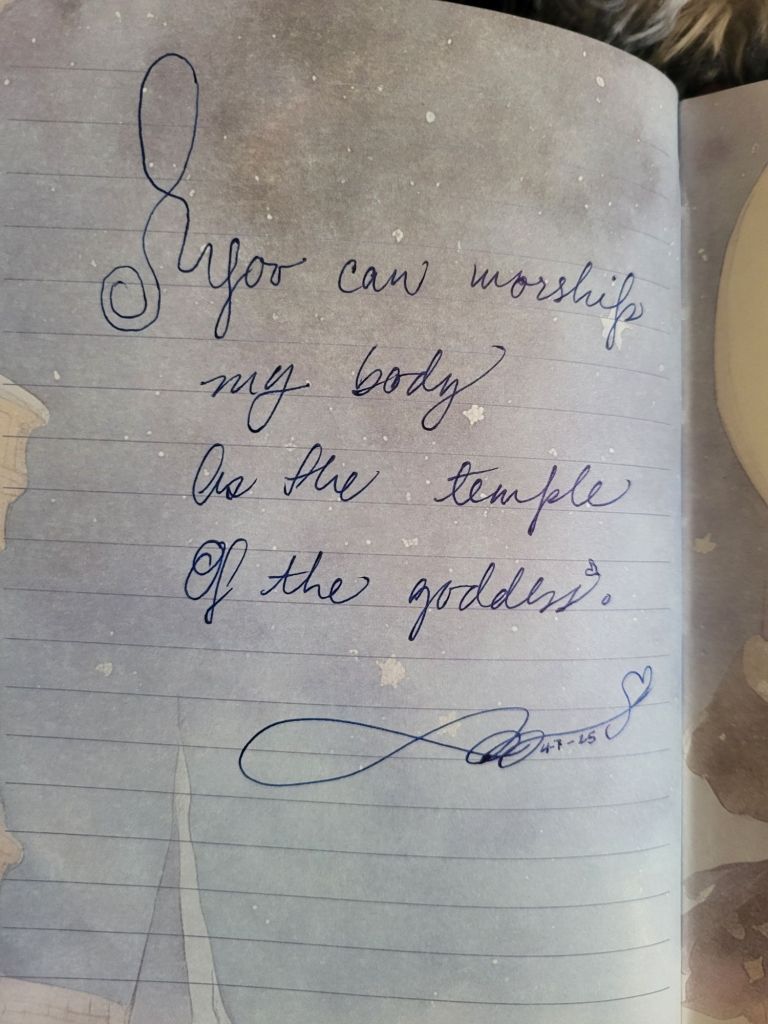 You can worship
my body
As the temple
Of the goddess.
4-7-25